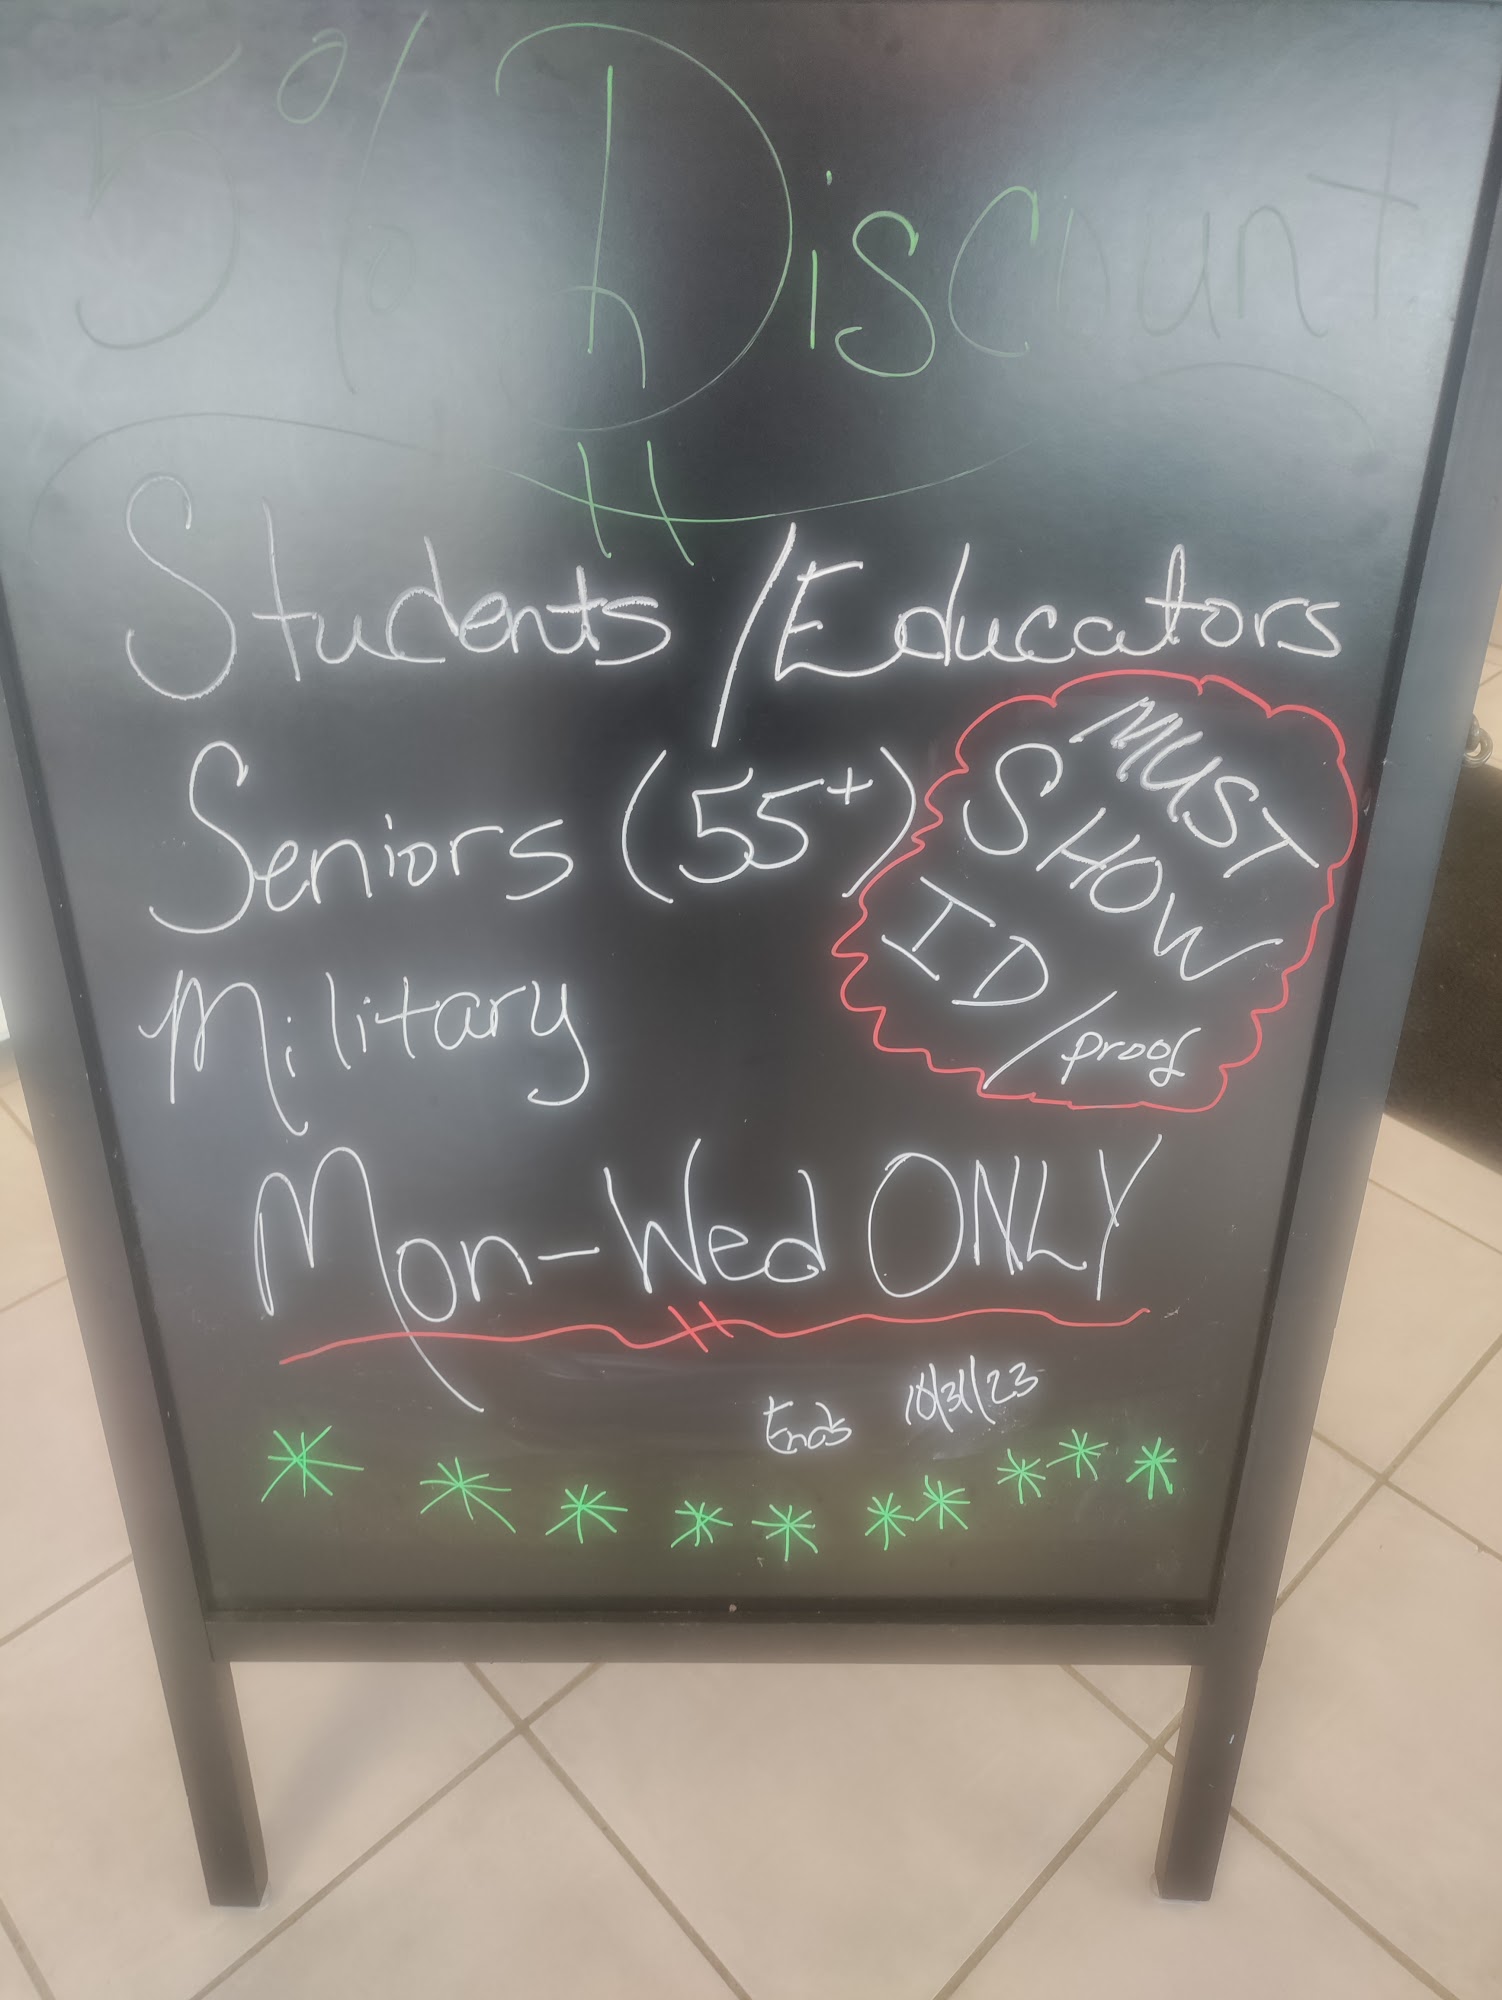 5% Discount
Students/Educators
Seniors (55+)
MUST
SHOW
ID/proof
Military
Mon-Wed ONLY
Ends 10/31/23